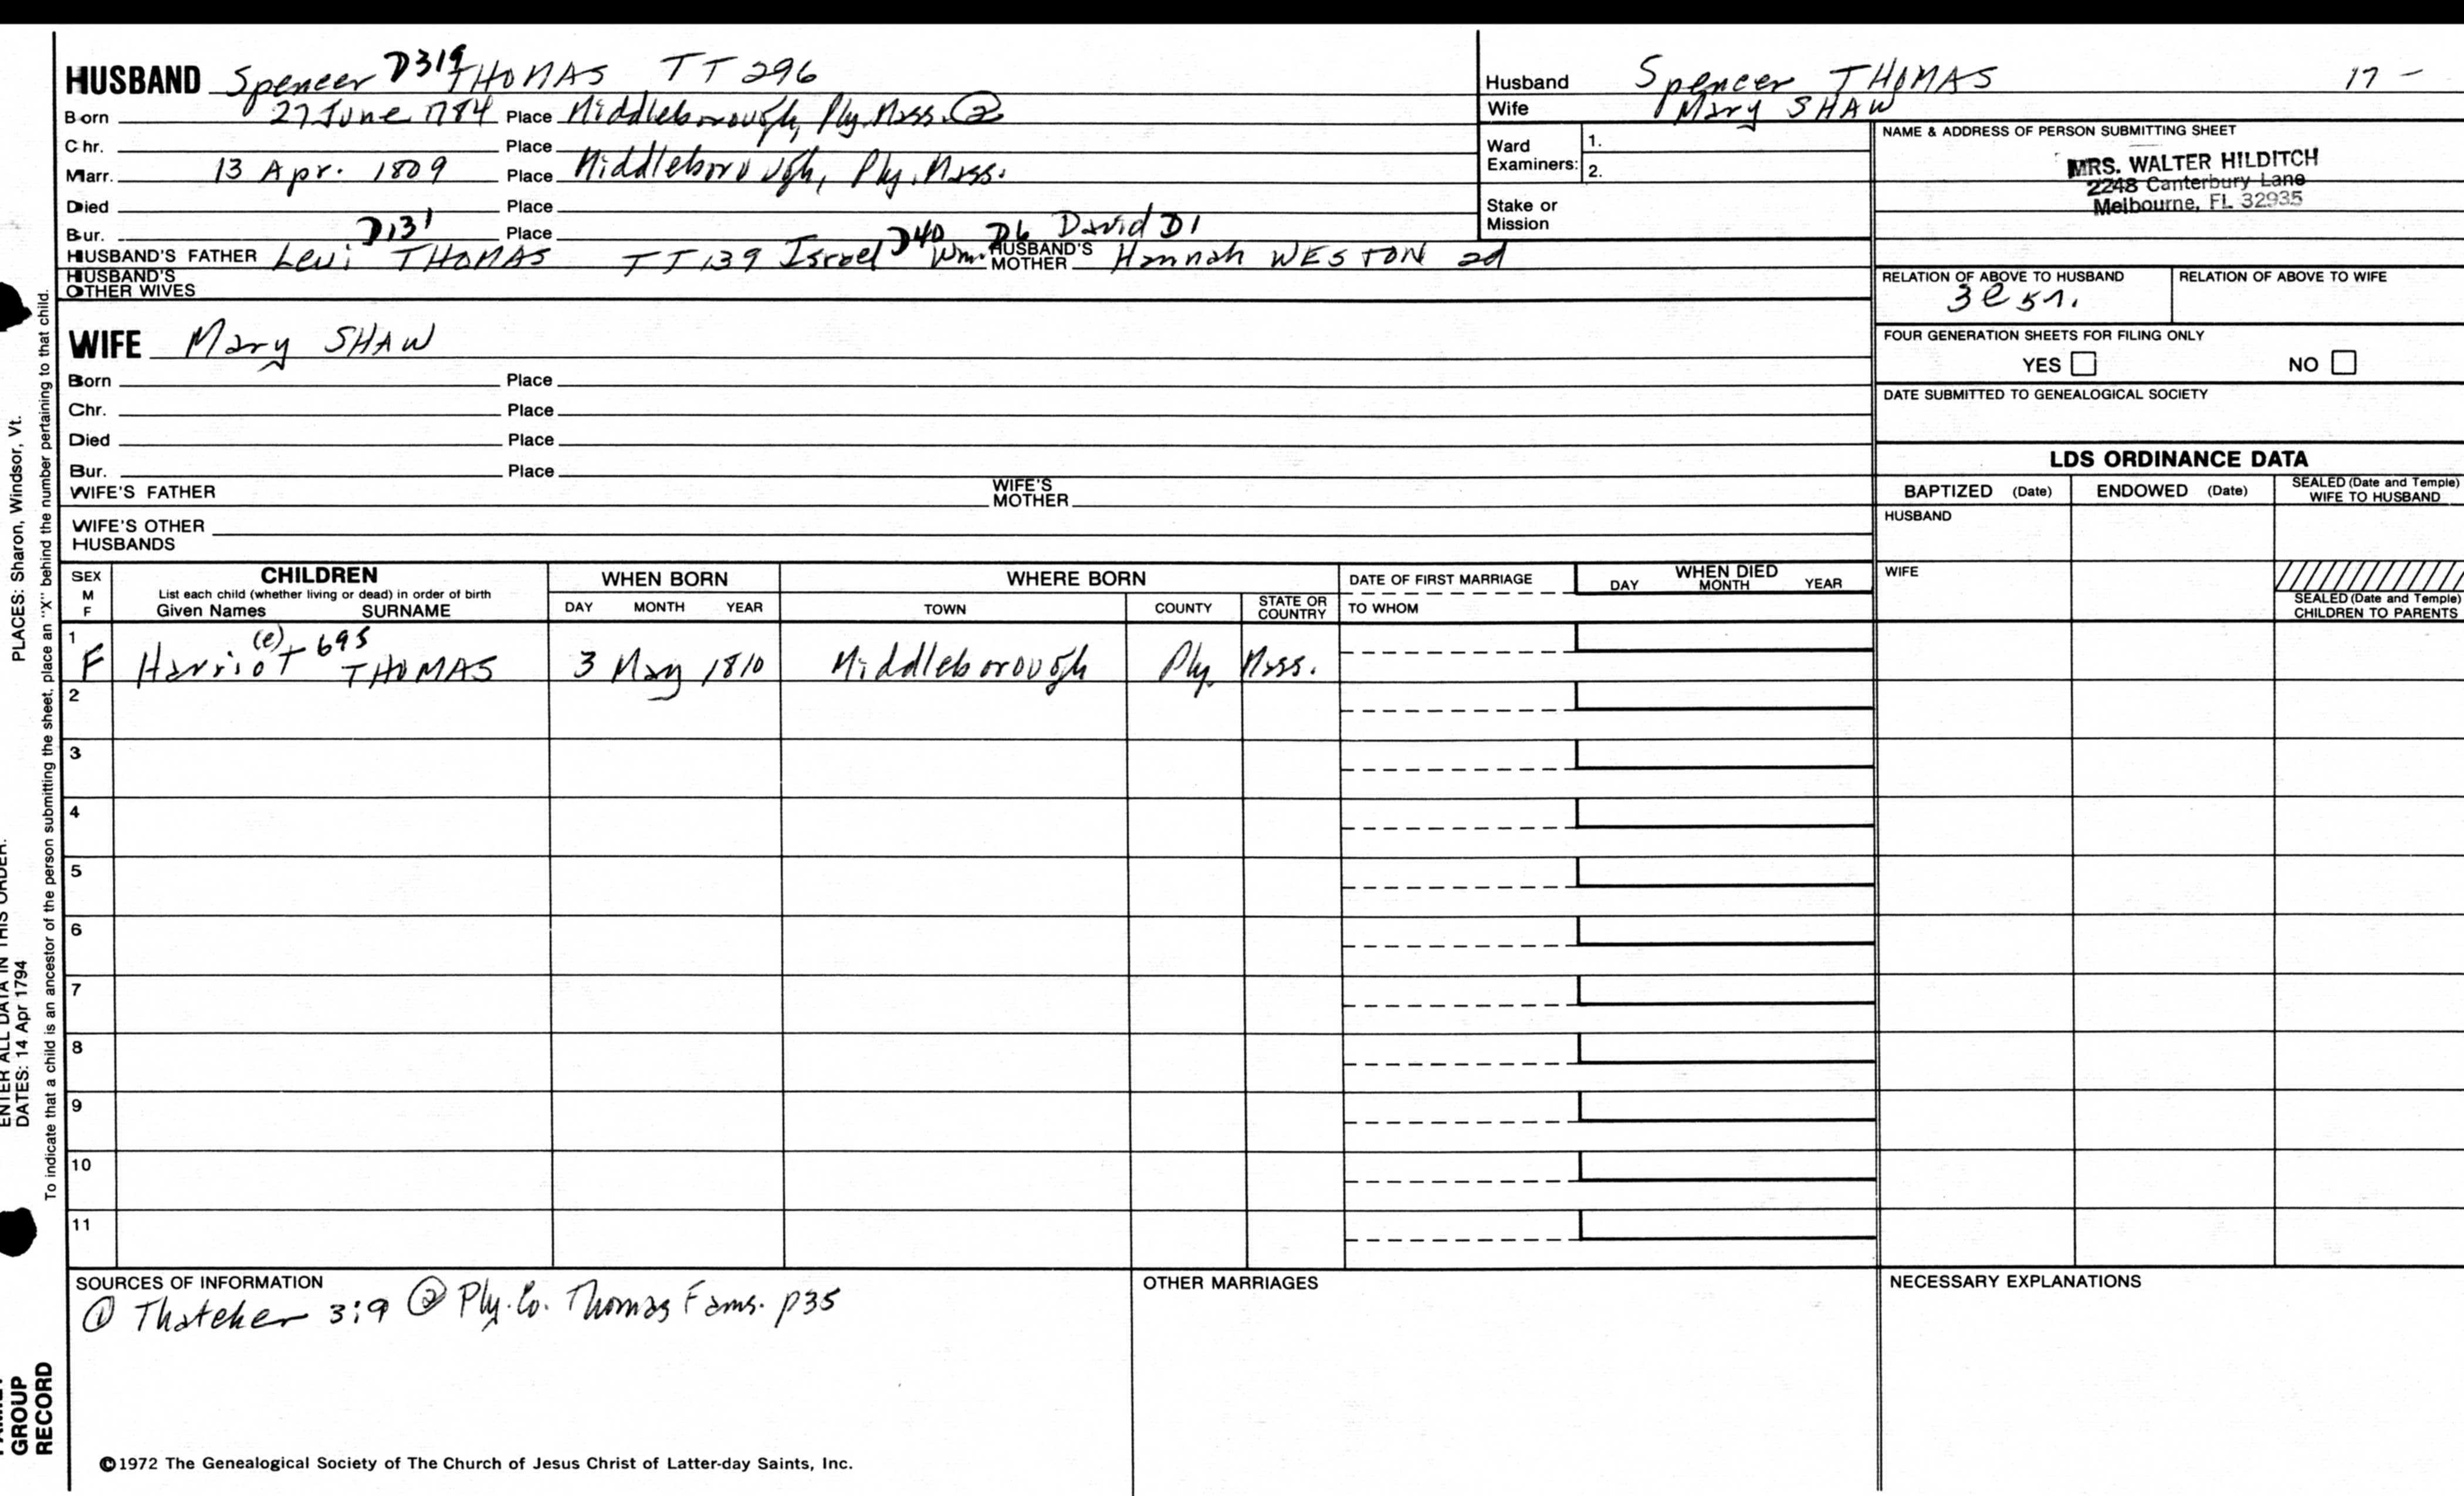 HUSBAND Spencer D319 THOMAS TT 296
Born 27 June 1784 Place Middleborough, Ply. Mass. ②
Chr. Place
Marr. 13 Apr. 1809 Place Middleborough, Ply. Mass.
Died Place
Bur. Place
D131 D40 D6 David D1
HUSBAND'S FATHER Levi THOMAS TT 139 Israel Wm. HUSBAND'S MOTHER Hannah WESTON 2d
HUSBAND'S OTHER WIVES
WIFE Mary SHAW
Born Place
Chr. Place
Died Place
Bur. Place
WIFE'S FATHER WIFE'S MOTHER
WIFE'S OTHER HUSBANDS
Husband Spencer THOMAS 17 –
Wife Mary SHAW
Ward Examiners: 1.
2.
Stake or Mission
NAME & ADDRESS OF PERSON SUBMITTING SHEET
MRS. WALTER HILDITCH
2248 Canterbury Lane
Melbourne, FL 32935
RELATION OF ABOVE TO HUSBAND RELATION OF ABOVE TO WIFE
FOUR GENERATION SHEETS FOR FILING ONLY
YES NO
DATE SUBMITTED TO GENEALOGICAL SOCIETY
LDS ORDINANCE DATA
BAPTIZED (Date) ENDOWED (Date) SEALED (Date and Temple) WIFE TO HUSBAND
HUSBAND
WIFE
SEALED (Date and Temple) CHILDREN TO PARENTS
SEX M F
CHILDREN
List each child (whether living or dead) in order of birth
Given Names SURNAME
WHEN BORN
DAY MONTH YEAR
WHERE BORN
TOWN COUNTY STATE OR COUNTRY
DATE OF FIRST MARRIAGE
TO WHOM
WHEN DIED
DAY MONTH YEAR
1 F Harriot (e) 695 THOMAS 3 May 1810 Middleborough Ply. Mass.
2
3
4
5
6
7
8
9
10
11
SOURCES OF INFORMATION
① Thatcher 3:9 ② Ply. Co. Thomas Fams. p35
OTHER MARRIAGES
NECESSARY EXPLANATIONS
©1972 The Genealogical Society of The Church of Jesus Christ of Latter-day Saints, Inc.
PLACES: Sharon, Windsor, Vt.
ENTER ALL DATA IN THIS ORDER:
DATES: 14 Apr 1794
To indicate that a child is an ancestor of the person submitting the sheet, place an "X" behind the number pertaining to that child.
FAMILY
GROUP
RECORD